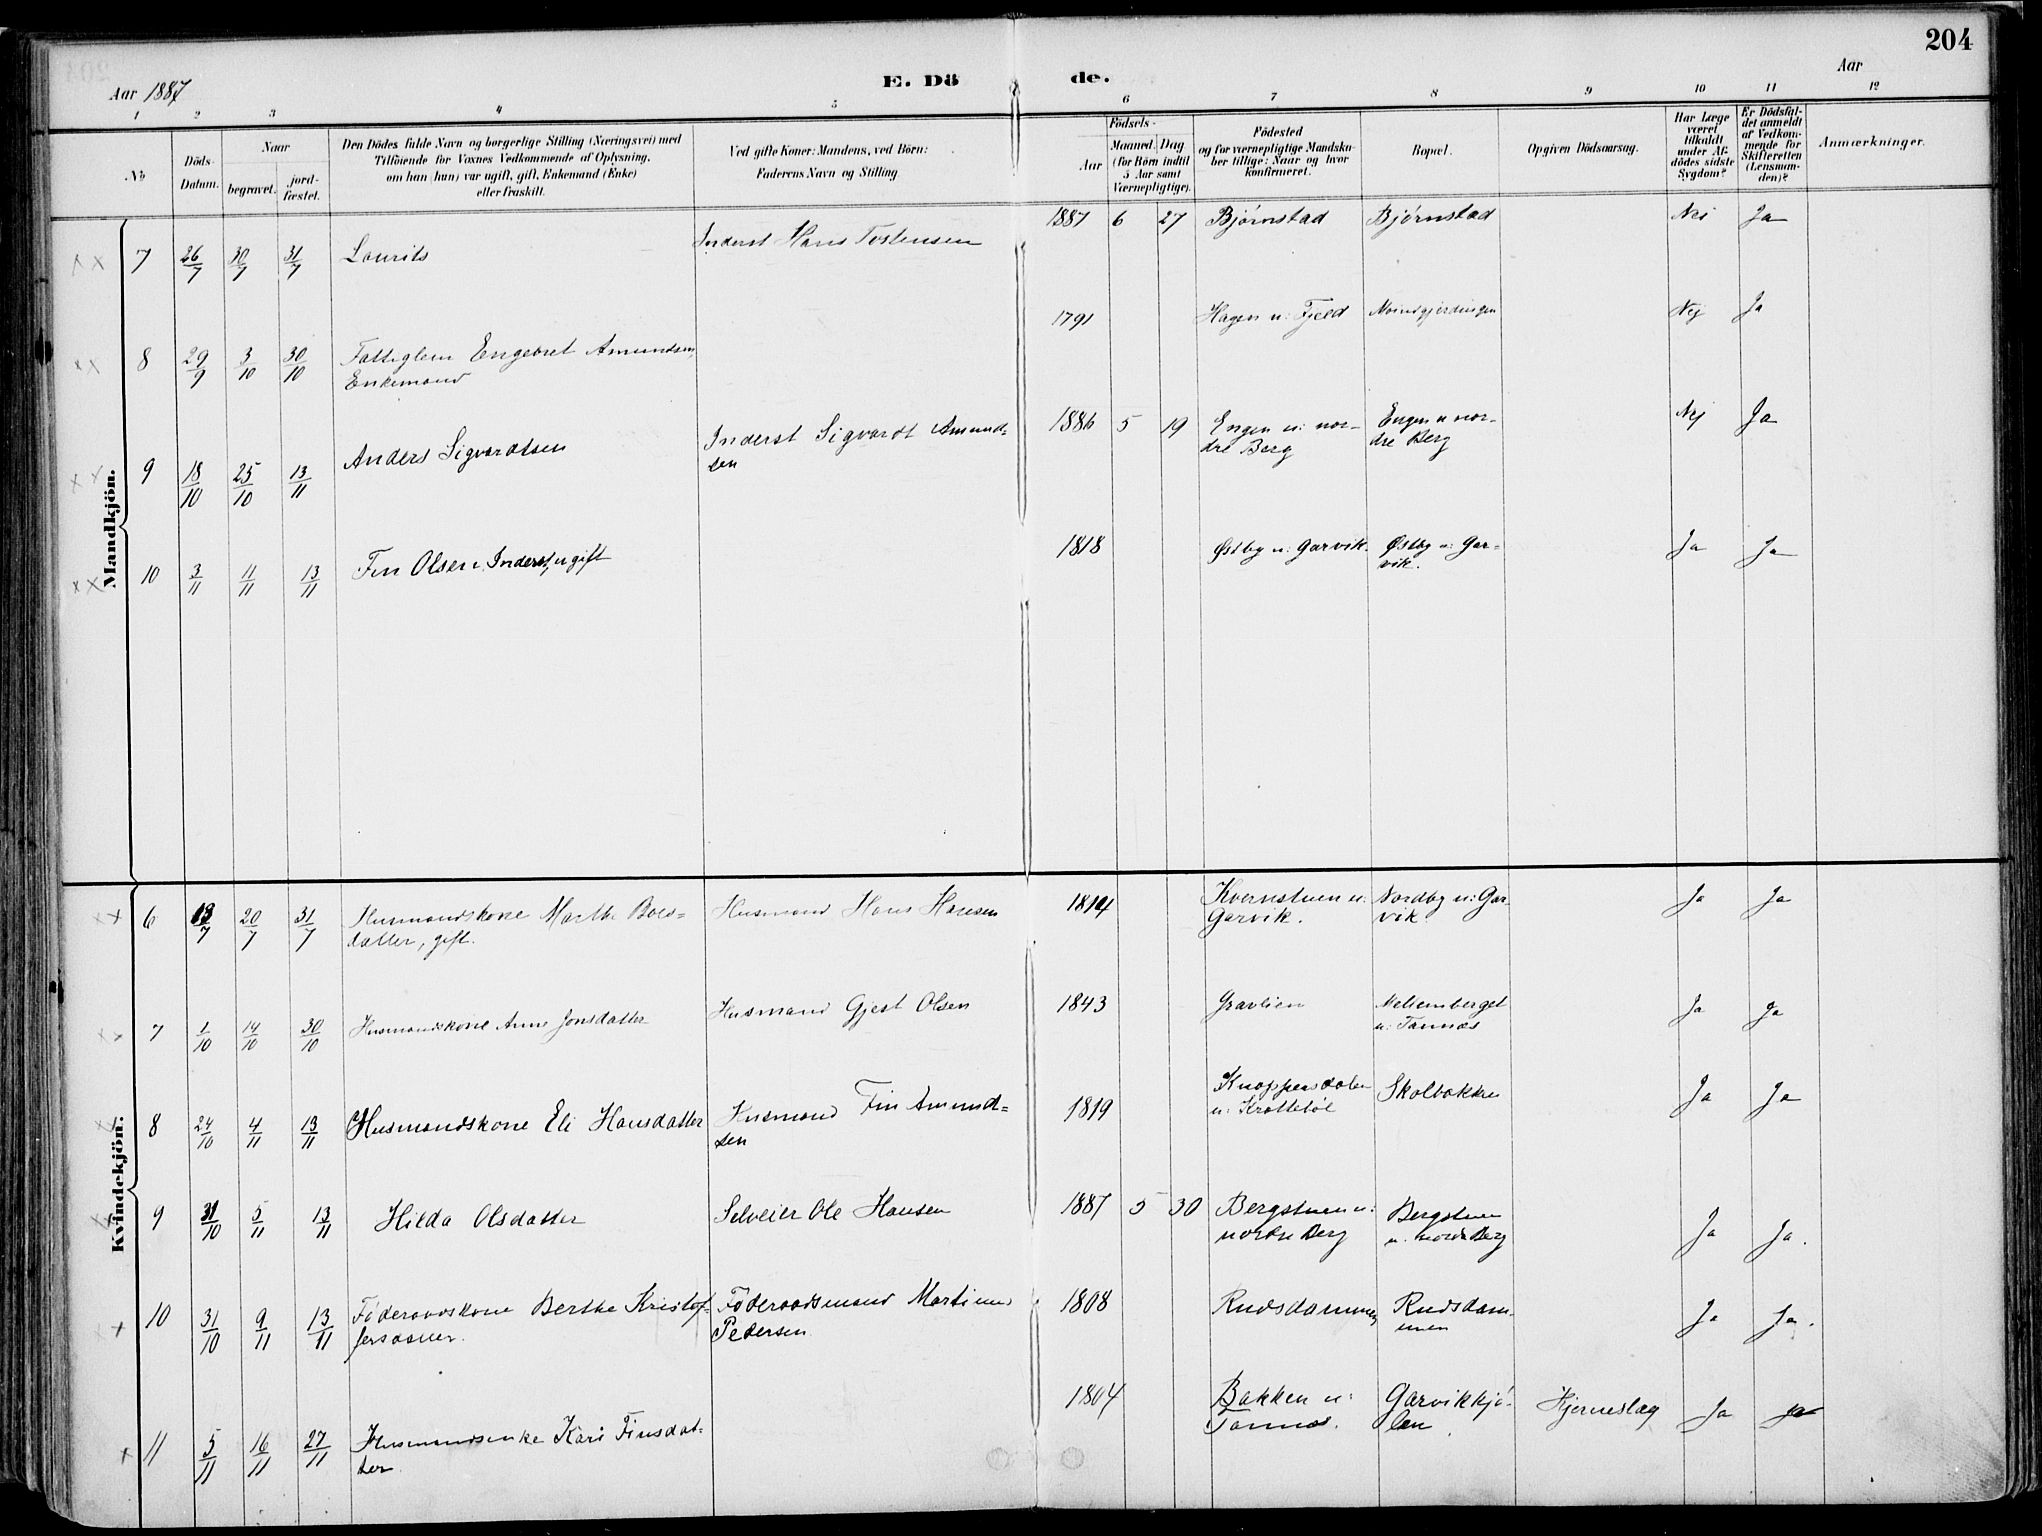 204
Aar 1887
E. Dö de.
Aar
1 2 3 4 5 6 7 8 9 10 11 12
No
Döds-
Datum.
Naar
begravet.
jord-
fæstet.
Den Dödes fulde Navn og borgerlige Stilling (Næringsvei) med
Tilföiende for Voxnes Vedkommende af Oplysning,
om han (hun) var ugift, gift, Enkemand (Enke)
eller fraskilt.
Ved gifte Koner: Mandens, ved Börn:
Faderens Navn og Stilling.
Födsels-
Aar
Maaned. Dag
(for Börn indtil
5 Aar samt
Værnepligtige).
Födested
og for værnepligtige Mandska-
ber tillige: Naar og hvor
konfirmeret.
Bopæl.
Opgiven Dödsaarsag.
Har Læge
været
tilkaldt
under Af-
dödes sidste
Sygdom?
Er Dödsfal-
det anmeldt
af Vedkom-
mende for
Skifteretten
(Lensman-
den)?
Anmærkninger.
Mandkjön.
7 26/7 30/7 31/7 Laurits Inderst Hans Tostensen 1887 6 27 Bjørnstad Bjørnstad Nei Ja
8 29/9 3/10 30/10 Fattiglem Engebret Amundsen, 1791 Hagen u: Fjeld Nei Ja
Enkemand
9 18/10 25/10 13/11 Anders Sigvardtsen Inderst Sigvardt Amund- 1886 5 19 Engen u: nor- Engen u nor- Nej Ja
sen dre Berg dre Berg
10 3/11 11/11 13/11 Fin Olsen, Inderst, ugift 1818 Østby u: Garvik. Østby u: Gar- Ja Ja
vik.
Kvindekjön.
6 13/7 20/7 31/7 Husmandskone Marthe Boes- Husmand Hans Hansen 1814 Kvernstuen u: Nordby u: Gar- Ja Ja
datter, gift. Garvik. vik.
7 1/10 14/10 30/10 Husmandskone Anne Jonsdatter Husmand Gjest Olsen 1843 Gravlien Ja Ja
u: Tannæs
8 24/10 4/11 13/11 Husmandskone Eli Hansdatter Husmand Fin Amund- 1819 Knappersdalen Skolbakken Ja Ja
sen
9 31/10 5/11 13/11 Hilda Olsdatter Selveier Ole Hansen 1887 5 30 Bergstuen u: Bergstuen Ja Ja.
nordre Berg u. nordre Berg
10 31/10 9/11 13/11 Føderaadskone Berthe Kristof- Føderaadsmand Martinus 1808 Rudsdammen Rudsdam- Ja Ja.
fersdatter. Pedersen men
11 5/11 16/11 27/11 Husmandsenke Kari Finsdat- 1804 Bakken u: Garvikkjø- Hjerneslag Ja Ja
ter. Tannæs. len